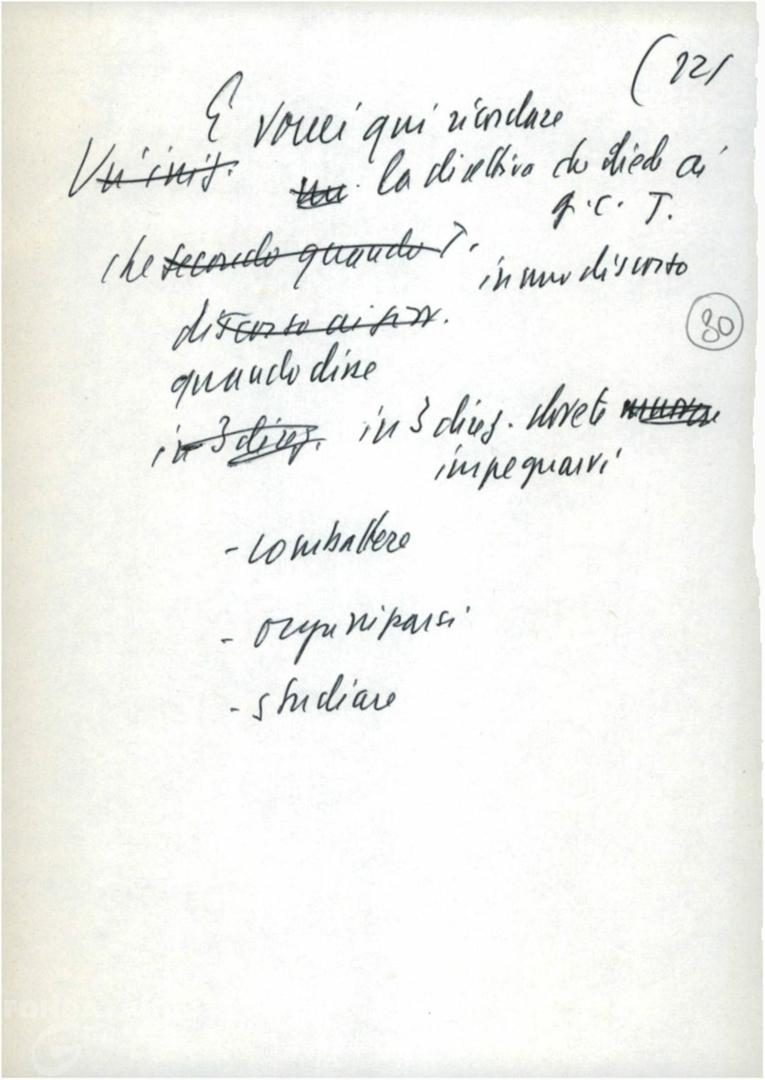 (22)
E vorrei qui ricordare
la direttiva che diede ai
g.c. T.
che secondo quando T.
in un discorso
discorso ai giov.
30
quando disse
in 3 direz. in 3 direz. dovete
impegnarvi
- combattere
- organizzarsi
- studiare